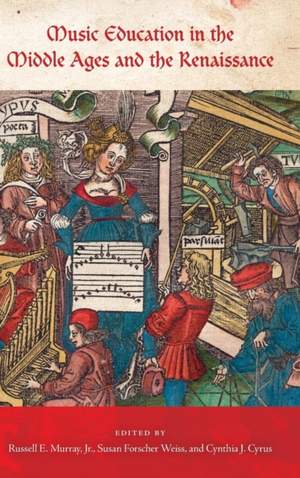 Music Education in the
Middle Ages and the Renaissance
YPUS
poeta
TV
EDITED BY
Russell E. Murray, Jr., Susan Forscher Weiss, and Cynthia J. Cyrus